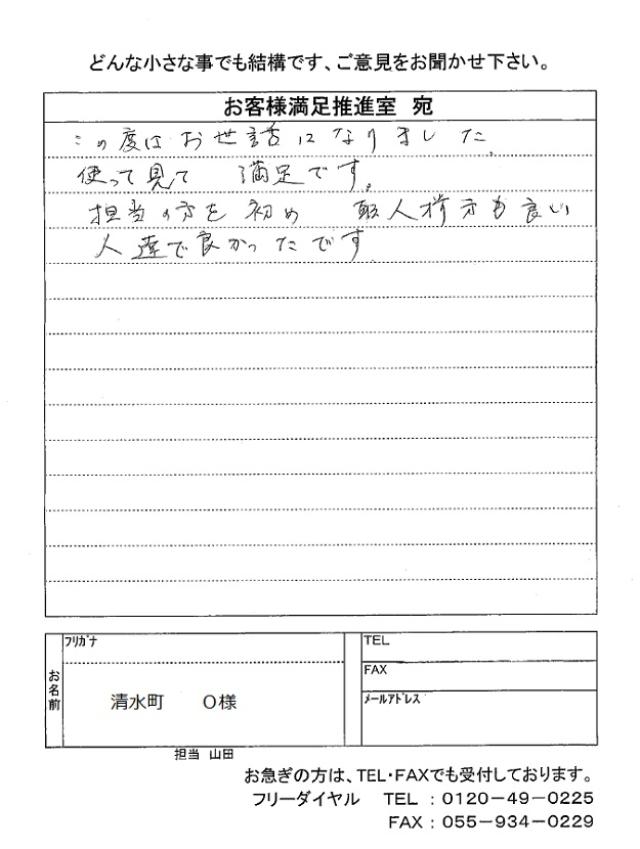 どんな小さな事でも結構です、ご意見をお聞かせ下さい。
お客様満足推進室 宛
この度はお世話になりました。
使って見て 満足です。
担当の方を初め 職人様方も良い
人達で良かったです
フリガナ
お名前
清水町 O様
TEL
FAX
メールアドレス
担当 山田
お急ぎの方は、TEL・FAXでも受付しております。
フリーダイヤル TEL : 0120-49-0225
FAX : 055-934-0229